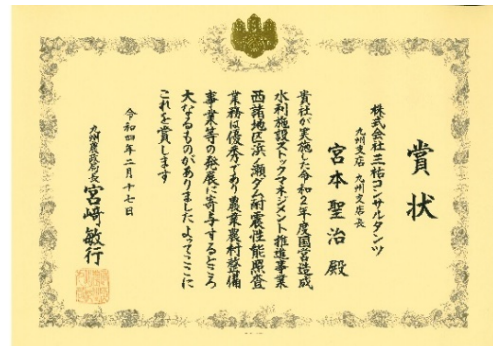 賞状
株式会社三祐コンサルタンツ
九州支店 九州支店長
宮本聖治 殿
貴社が実施した令和2年度国営造成
水利施設ストックマネジメント推進事業
西諸地区浜ノ瀬ダム耐震性能照査
業務は優秀であり農業農村整備
事業等の発展に寄与するところ
大なるものがありましたよってここに
これを賞します
令和四年二月十七日
九州農政局長 宮﨑敏行